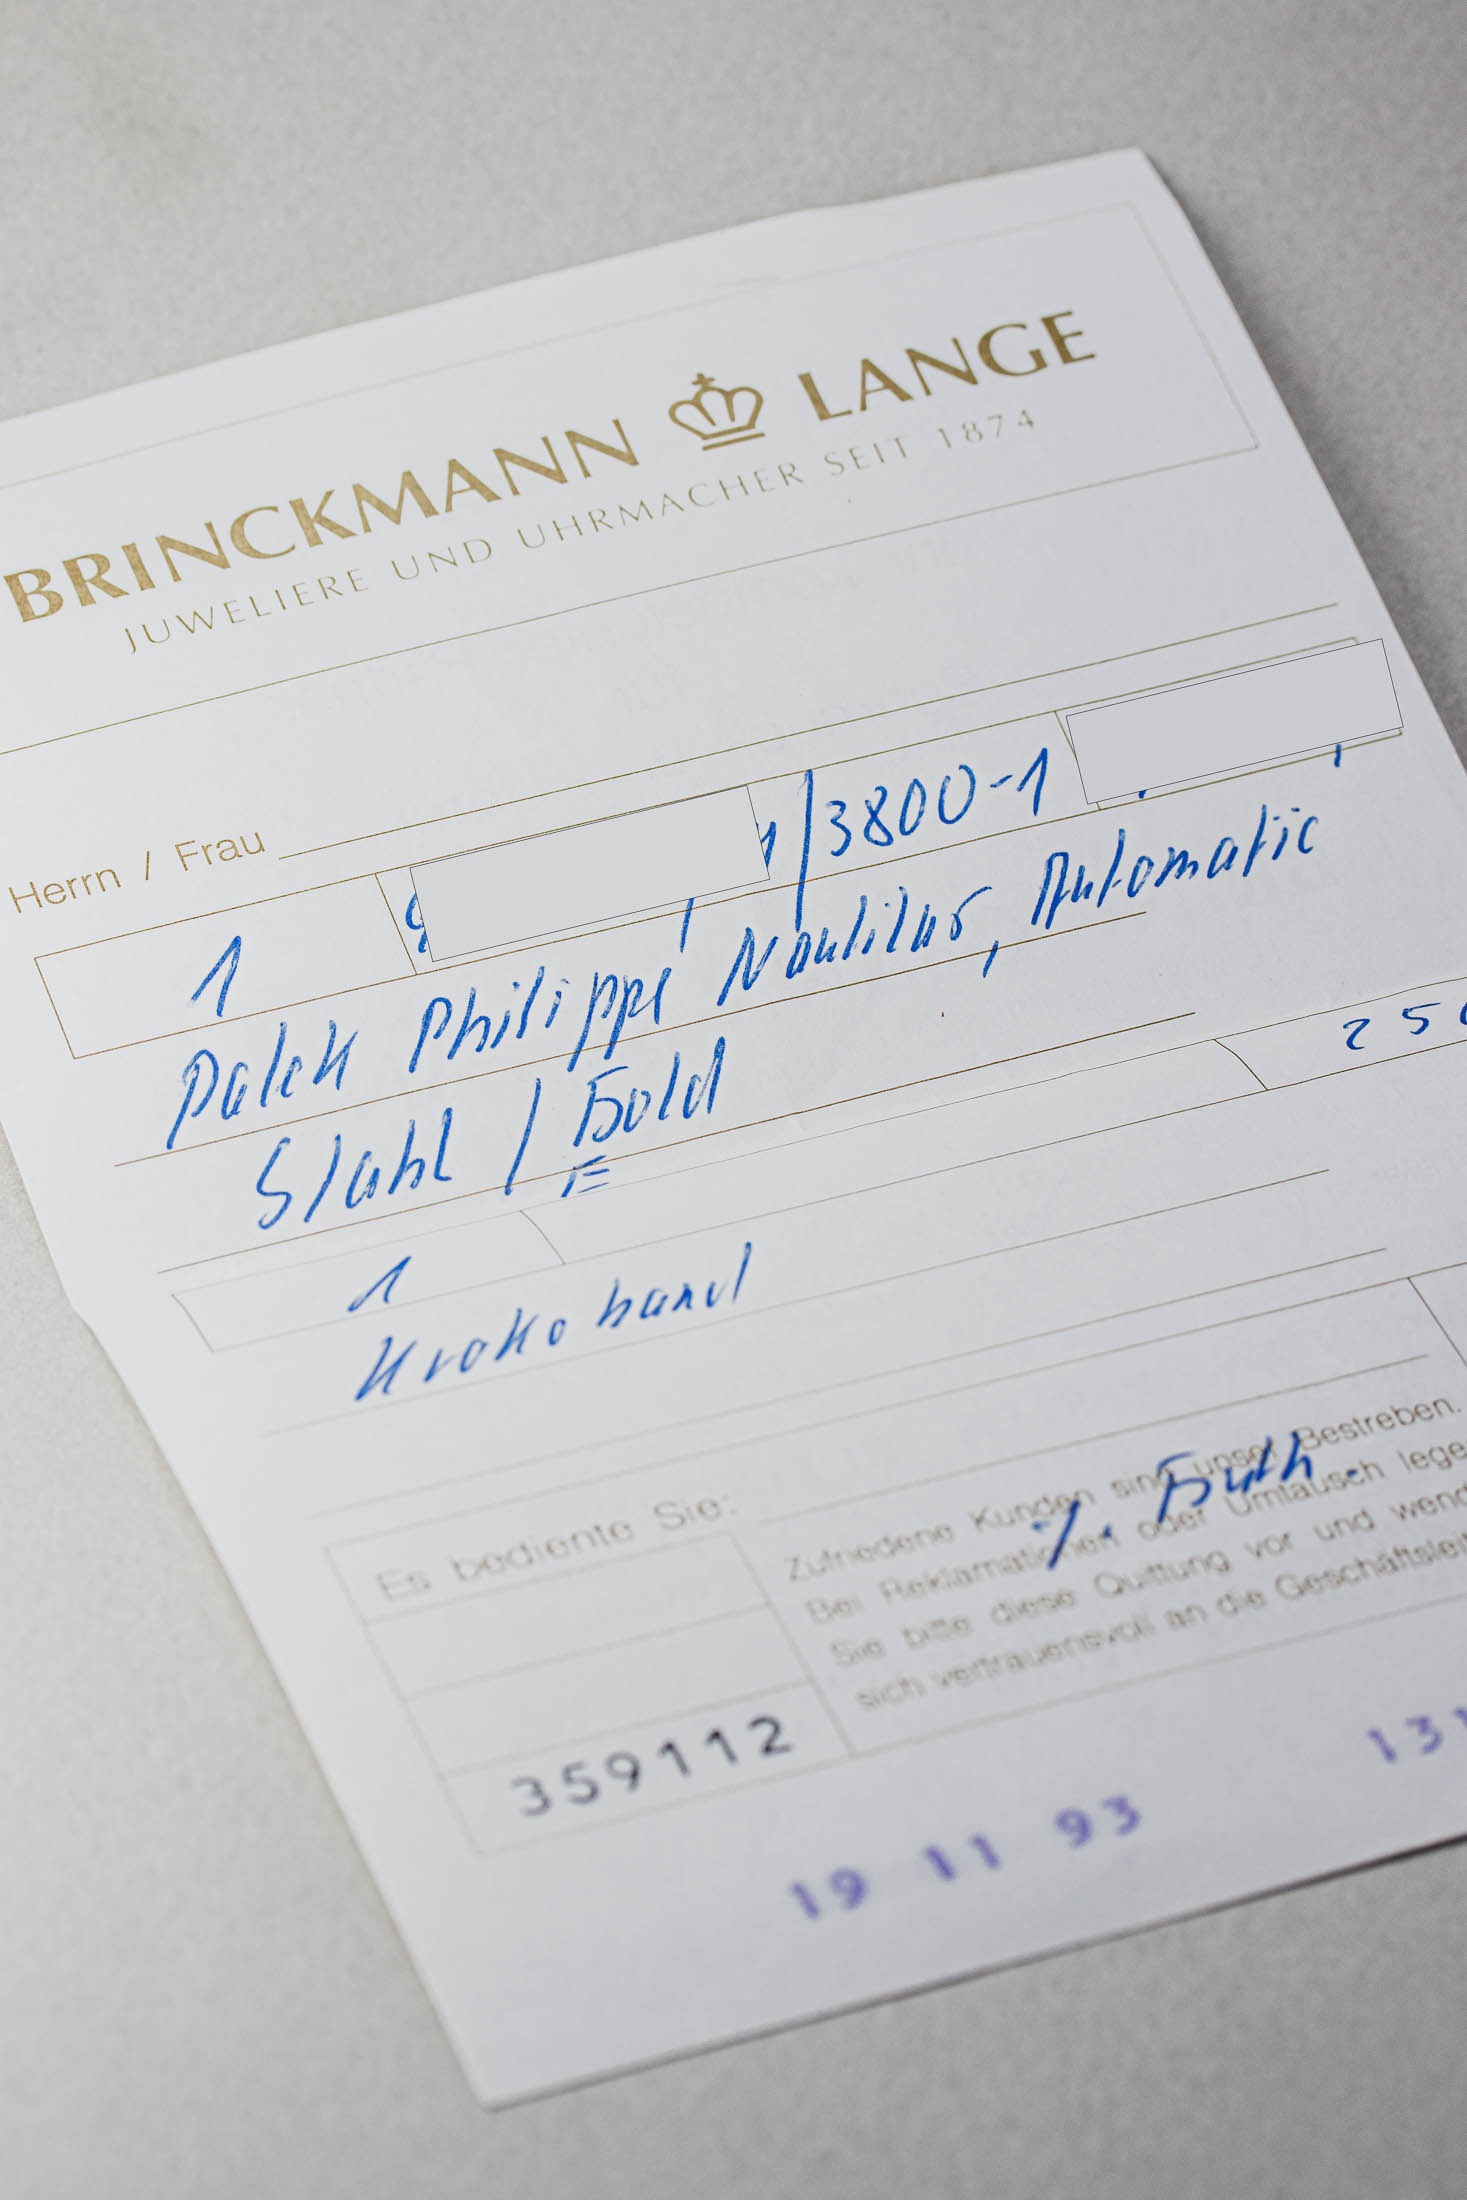 BRINCKMANN LANGE
JUWELIERE UND UHRMACHER SEIT 1874
Herrn / Frau
1 /3800-1
Patek Philippe Nautilus, Automatic
Stahl / Gold
250
1
Krokoband
Es bediente Sie:
Zufriedene Kunden sind unser Bestreben.
Bei Reklamationen oder Umtausch lege
Sie bitte diese Quittung vor und wend
sich vertrauensvoll an die Geschäftsleit
359112
19 11 93
131